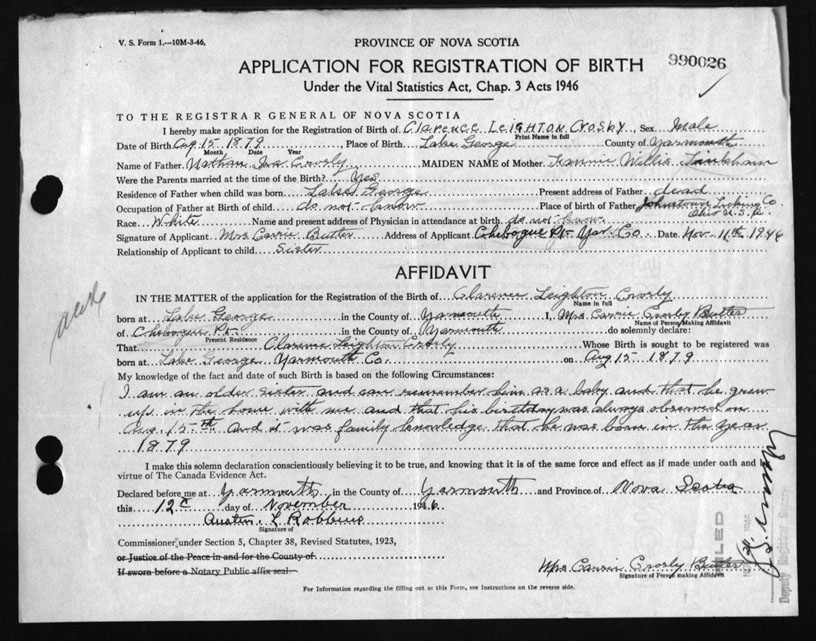 V. S. Form 1.—10M-3-46,
PROVINCE OF NOVA SCOTIA
APPLICATION FOR REGISTRATION OF BIRTH
990026
Under the Vital Statistics Act, Chap. 3 Acts 1946
TO THE REGISTRAR GENERAL OF NOVA SCOTIA
I hereby make application for the Registration of Birth of Clarence Leighton Crosby Sex Male
Print Name in full
Date of Birth Aug 15 1879 Place of Birth Lake George County of Yarmouth
Month Date Year
Name of Father Nathan Crosby MAIDEN NAME of Mother Willis
Were the Parents married at the time of Birth? Yes
Residence of Father when child was born Lake George Present address of Father dead
Occupation of Father at Birth of child do not know Place of birth of Father Johnstown Licking Co.
Ohio U.S.A.
Race White Name and present address of Physician in attendance at birth do not know
Signature of Applicant Mrs Carrie Butler Address of Applicant Chebogue Pt. Yar. Co. Date Nov 11th 1946
Relationship of Applicant to child Sister
AFFIDAVIT
IN THE MATTER of the application for the Registration of Birth of Clarence Leighton Crosby
Name in full
born at Lake George in the County of Yarmouth I, Mrs Carrie Crosby Butler
Name of Person Making Affidavit
of Chebogue Pt. in the County of Yarmouth do solemnly declare:
Present Residence
That Clarence Leighton Crosby Whose Birth is sought to be registered was
born at Lake George Yarmouth Co. on Aug 15 1879
My knowledge of the fact and date of such Birth is based on the following Circumstances:
I am an older sister and can remember him as a baby and that he grew
up in the home with me and that his birthday was always observed on
Aug. 15th and it was family knowledge that he was born in the year
1879
I make this solemn declaration conscientiously believing it to be true, and knowing that it is of the same force and effect as if made under oath and by
virtue of The Canada Evidence Act.
Declared before me at Yarmouth in the County of Yarmouth and Province of Nova Scotia
this 12th day of November 1946.
Austin L Robbins
Signature of
Commissioner under Section 5, Chapter 38, Revised Statutes, 1923,
or Justice of the Peace in and for the County of
If sworn before a Notary Public affix seal
Mrs Carrie Crosby Butler
Signature of Person making Affidavit
For Information regarding the filling out of this Form, see Instructions on the reverse side.
FILED
Deputy Registrar General